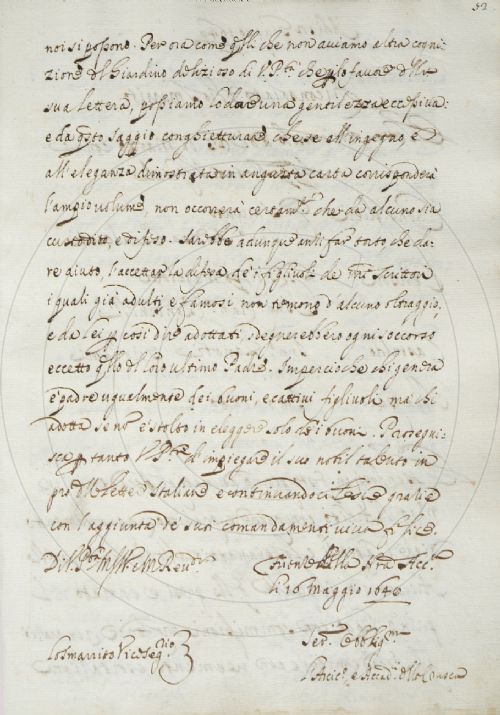 52
noi si possono. Per ora come q̃lli che non aviamo altra cogni-
zione del Giardino delizioso di V.P.tà che q̃llo favore della
sua lettera, possiamo lodare una gentilezza eccessiva:
e da q̃sto saggio conghietturare, che se all'ingegno, e
all'eleganza dimostrata in angusta carta corrisponderà
l'ampio volume, non occorrerà certam.te che da alcuno sia
custodito, e difeso. Sarebbe adunque anzi far torto che da-
re aiuto, l'accettar la difesa de' i figliuoli de Scrittori
i quali già adulti, e famosi non temono d'alcuno oltraggio,
e da lei p così dire adottati, sdegnerebbero ogni soccorso
eccetto q̃llo del loro ultimo Padre. Impercioche chi genera
è padre ugualmente dei buoni, e cattivi figliuoli, ma chi
adotta se n'è stolto in eleggere solo de' i buoni. Proseguis-
ca p tanto V.P.tà di impiegare il suo nobil talento in
prò delle lettere Italiane e continuandoci le sue grazie
con l'aggiunta de' suoi comandamenti viva felice.
Di V. P.tà M. Ill.re e M. Rev.da
Firenze dalla Nra Acc.a
li 16 Maggio 1640
Lo Smarrito Vicoseg.rio
Ser.ri Obblig.mi
L'Arcic.o e Accad.ci della Crusca